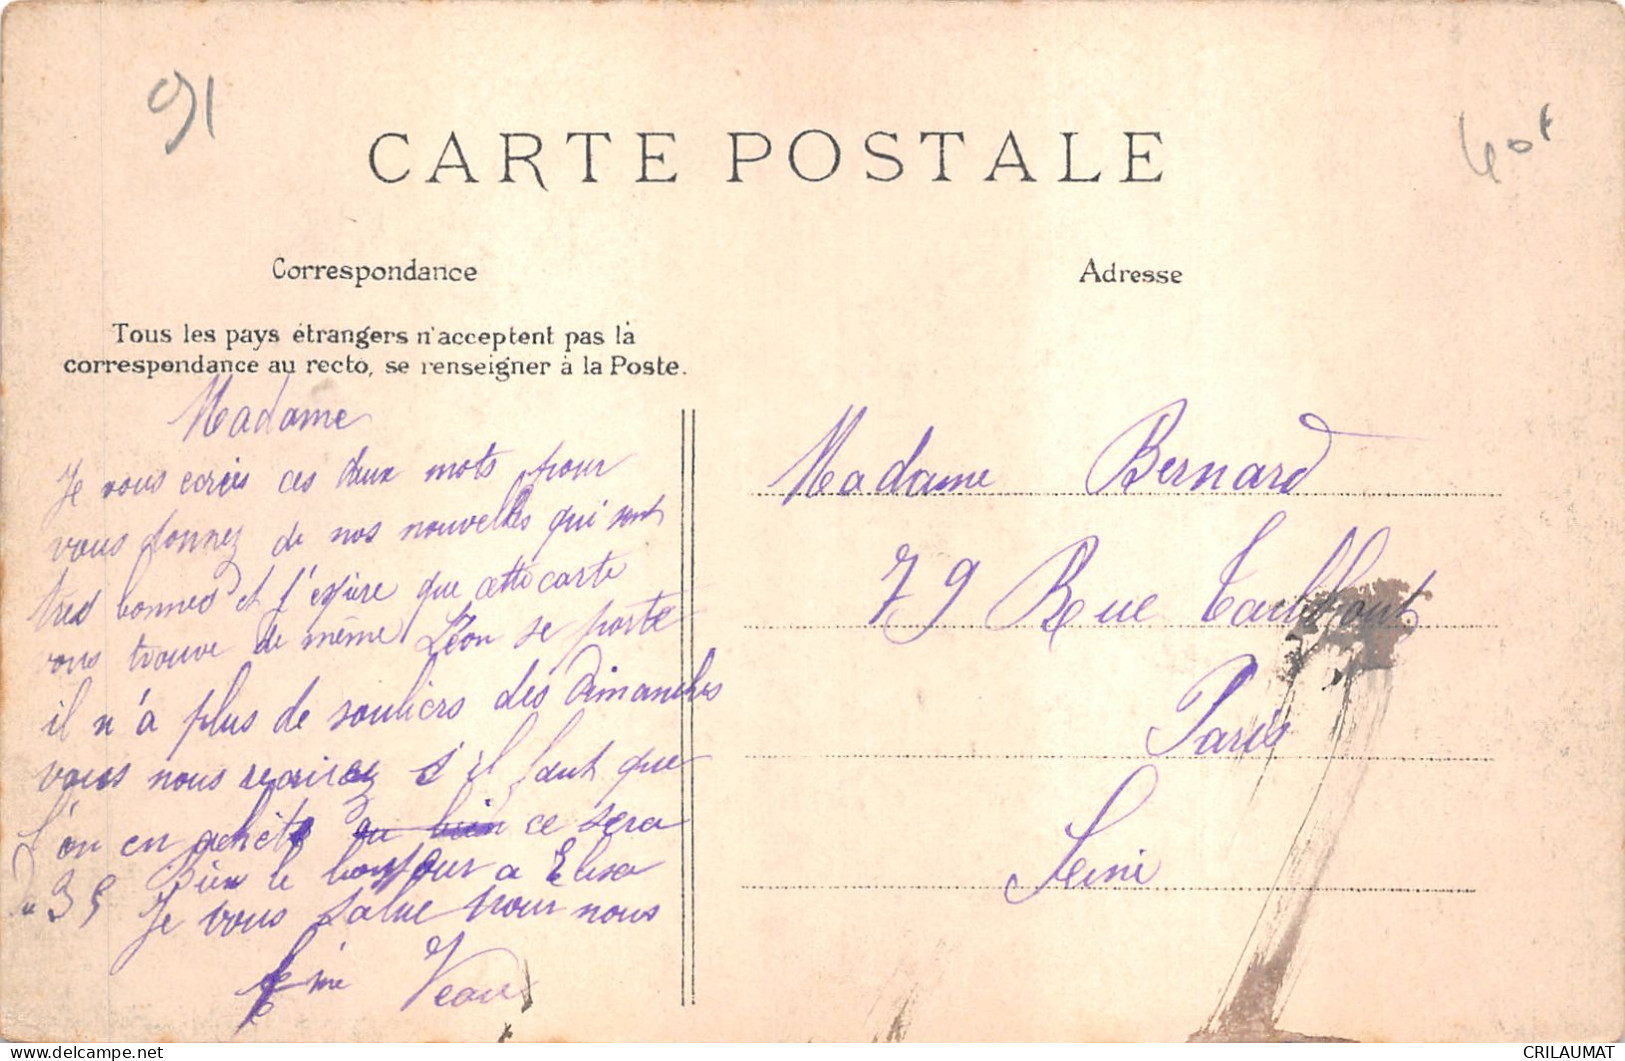 91
CARTE POSTALE
Correspondance
Adresse
Tous les pays étrangers n'acceptent pas la
correspondance au recto, se renseigner à la Poste.
Madame
Je vous ecries ces deux mots pour
vous donnez de nos nouvelles qui sont
tres bonnes et j'espère que cette carte
vous trouve de même Léon se porte
il n'a plus de souliers des Dimanches
vous nous s'il faut que
l'on en achète ou bien ce sera
35 Bien le bonjour a Elisa
Je vous salue pour nous
Veau
Madame Bernard
79 Rue Taitbout
Paris
Seine
delcampe.net
CRILAUMAT